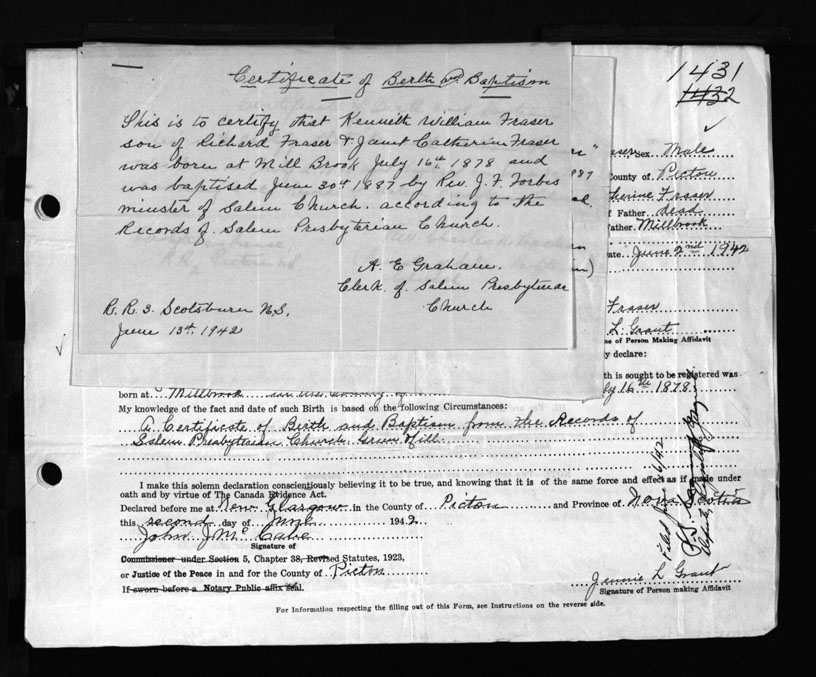 1431
1432
Certificate of Berth and Baptism
This is to certify that Kenneth William Fraser
son of Richard Fraser & Janet Catherine Fraser
was born at Mill Brook July 16th 1878 and
was baptised June 30th 1887 by Rev. J. F. Forbes
minister of Salem Church. according to the
Records of Salem Presbyterian Church.
A. E Graham.
Clerk of Salem Presbyterian
Church
R. R. 3. Scotsburn N.S.
June 13th 1942
Fraser Sex Male
County of Pictou
Catherine Fraser
of Father dead
Father Millbrook
Date June 2nd 1942
Fraser
L. Grant
re of Person Making Affidavit
ly declare:
th is sought to be registered was
born at Millbrook in the County of July 16th 1878.
My knowledge of the fact and date of such Birth is based on the following Circumstances:
A Certificate of Birth and Baptism from the Records of
Salem Presbyterian Church Green Hill
I make this solemn declaration conscientiously believing it to be true, and knowing that it is of the same force and effect as if made under
oath and by virtue of The Canada Evidence Act.
Declared before me at New Glasgow in the County of Pictou and Province of Nova Scotia
this second day of June 1942
John J McCabe
Signature of
Commissioner under Section 5, Chapter 38, Revised Statutes, 1923,
or Justice of the Peace in and for the County of Pictou
If sworn before a Notary Public affix seal.
Jennie L Grant
Signature of Person making Affidavit
For Information respecting the filling out of this Form, see Instructions on the reverse side.